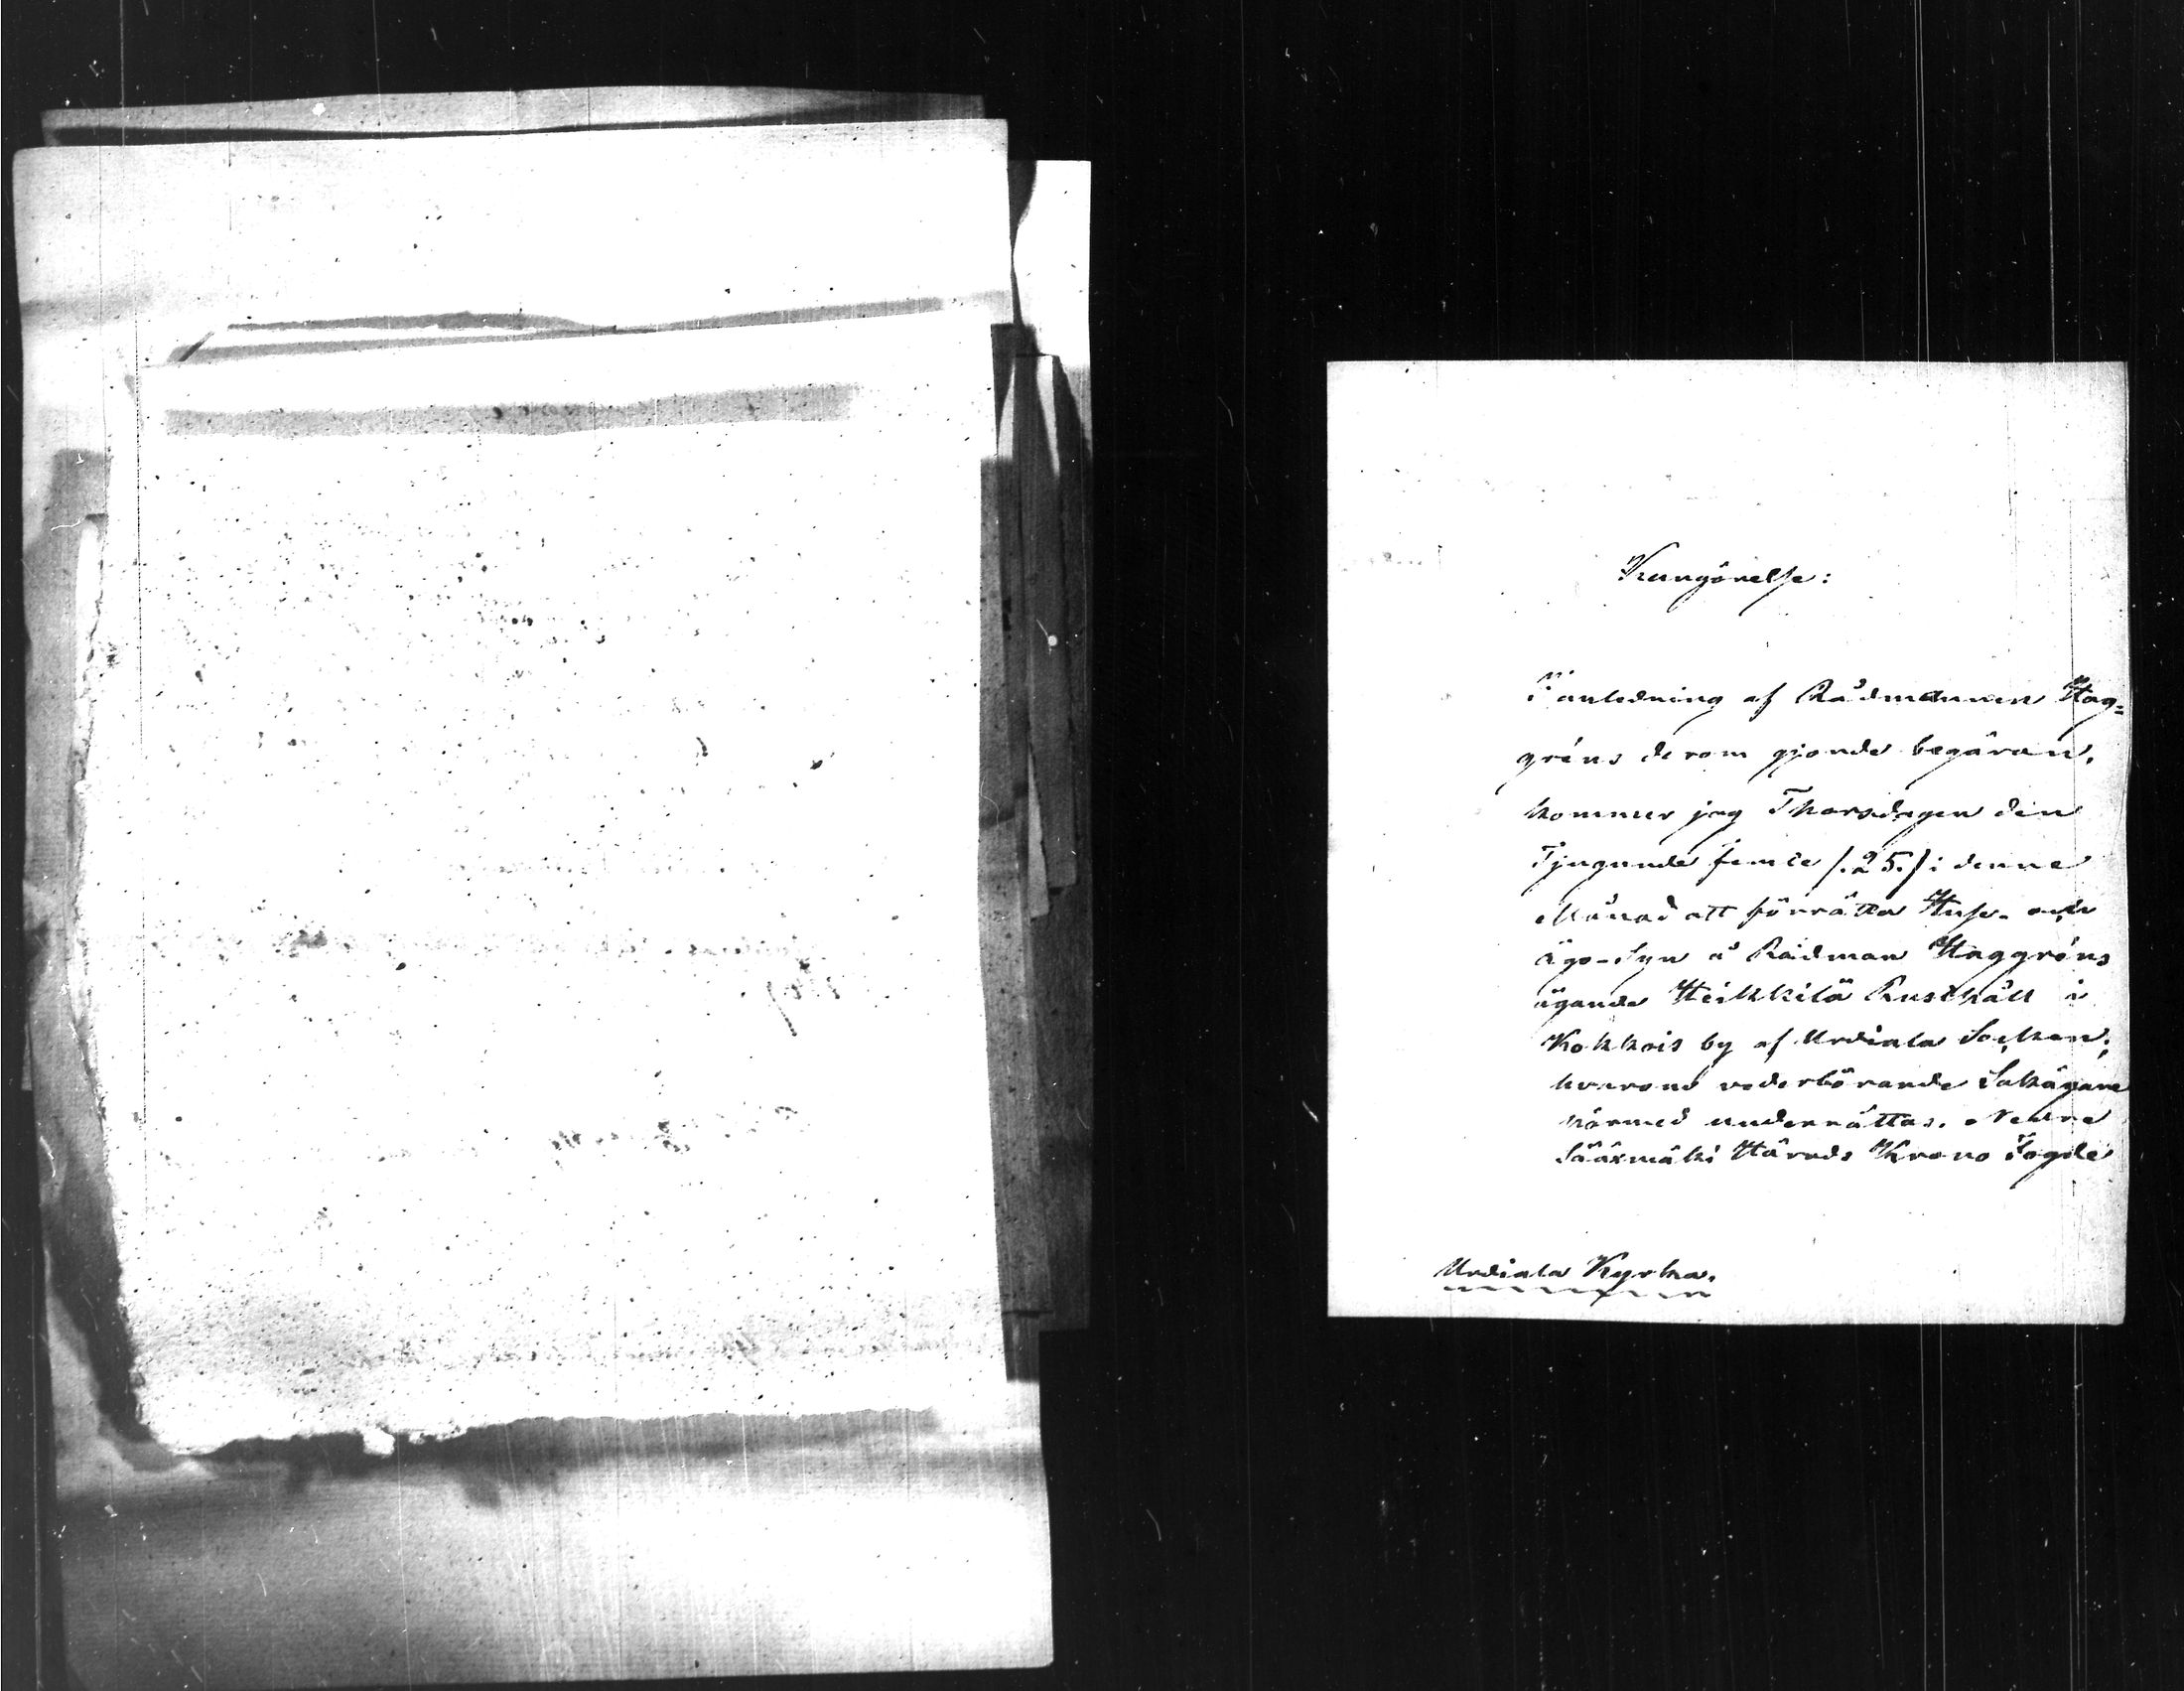 Kungörelse:
I anledning af Rådmannen Hag=
gréns derom gjorde begäran,
kommer jag Thorsdagen den
Tjugunde femte /:25:/ i denne
Månad att förrätta Huse- och
Ägo-Syn å Rådman Haggréns
ägande Heikkilä Rusthåll i
Kokkois by af Urdiala Socken;
hvarom vederbörande Sakägare
härmed underrättas. Nedre
Sääxmäki Härads Krono Fogde
Urdiala Kyrka.